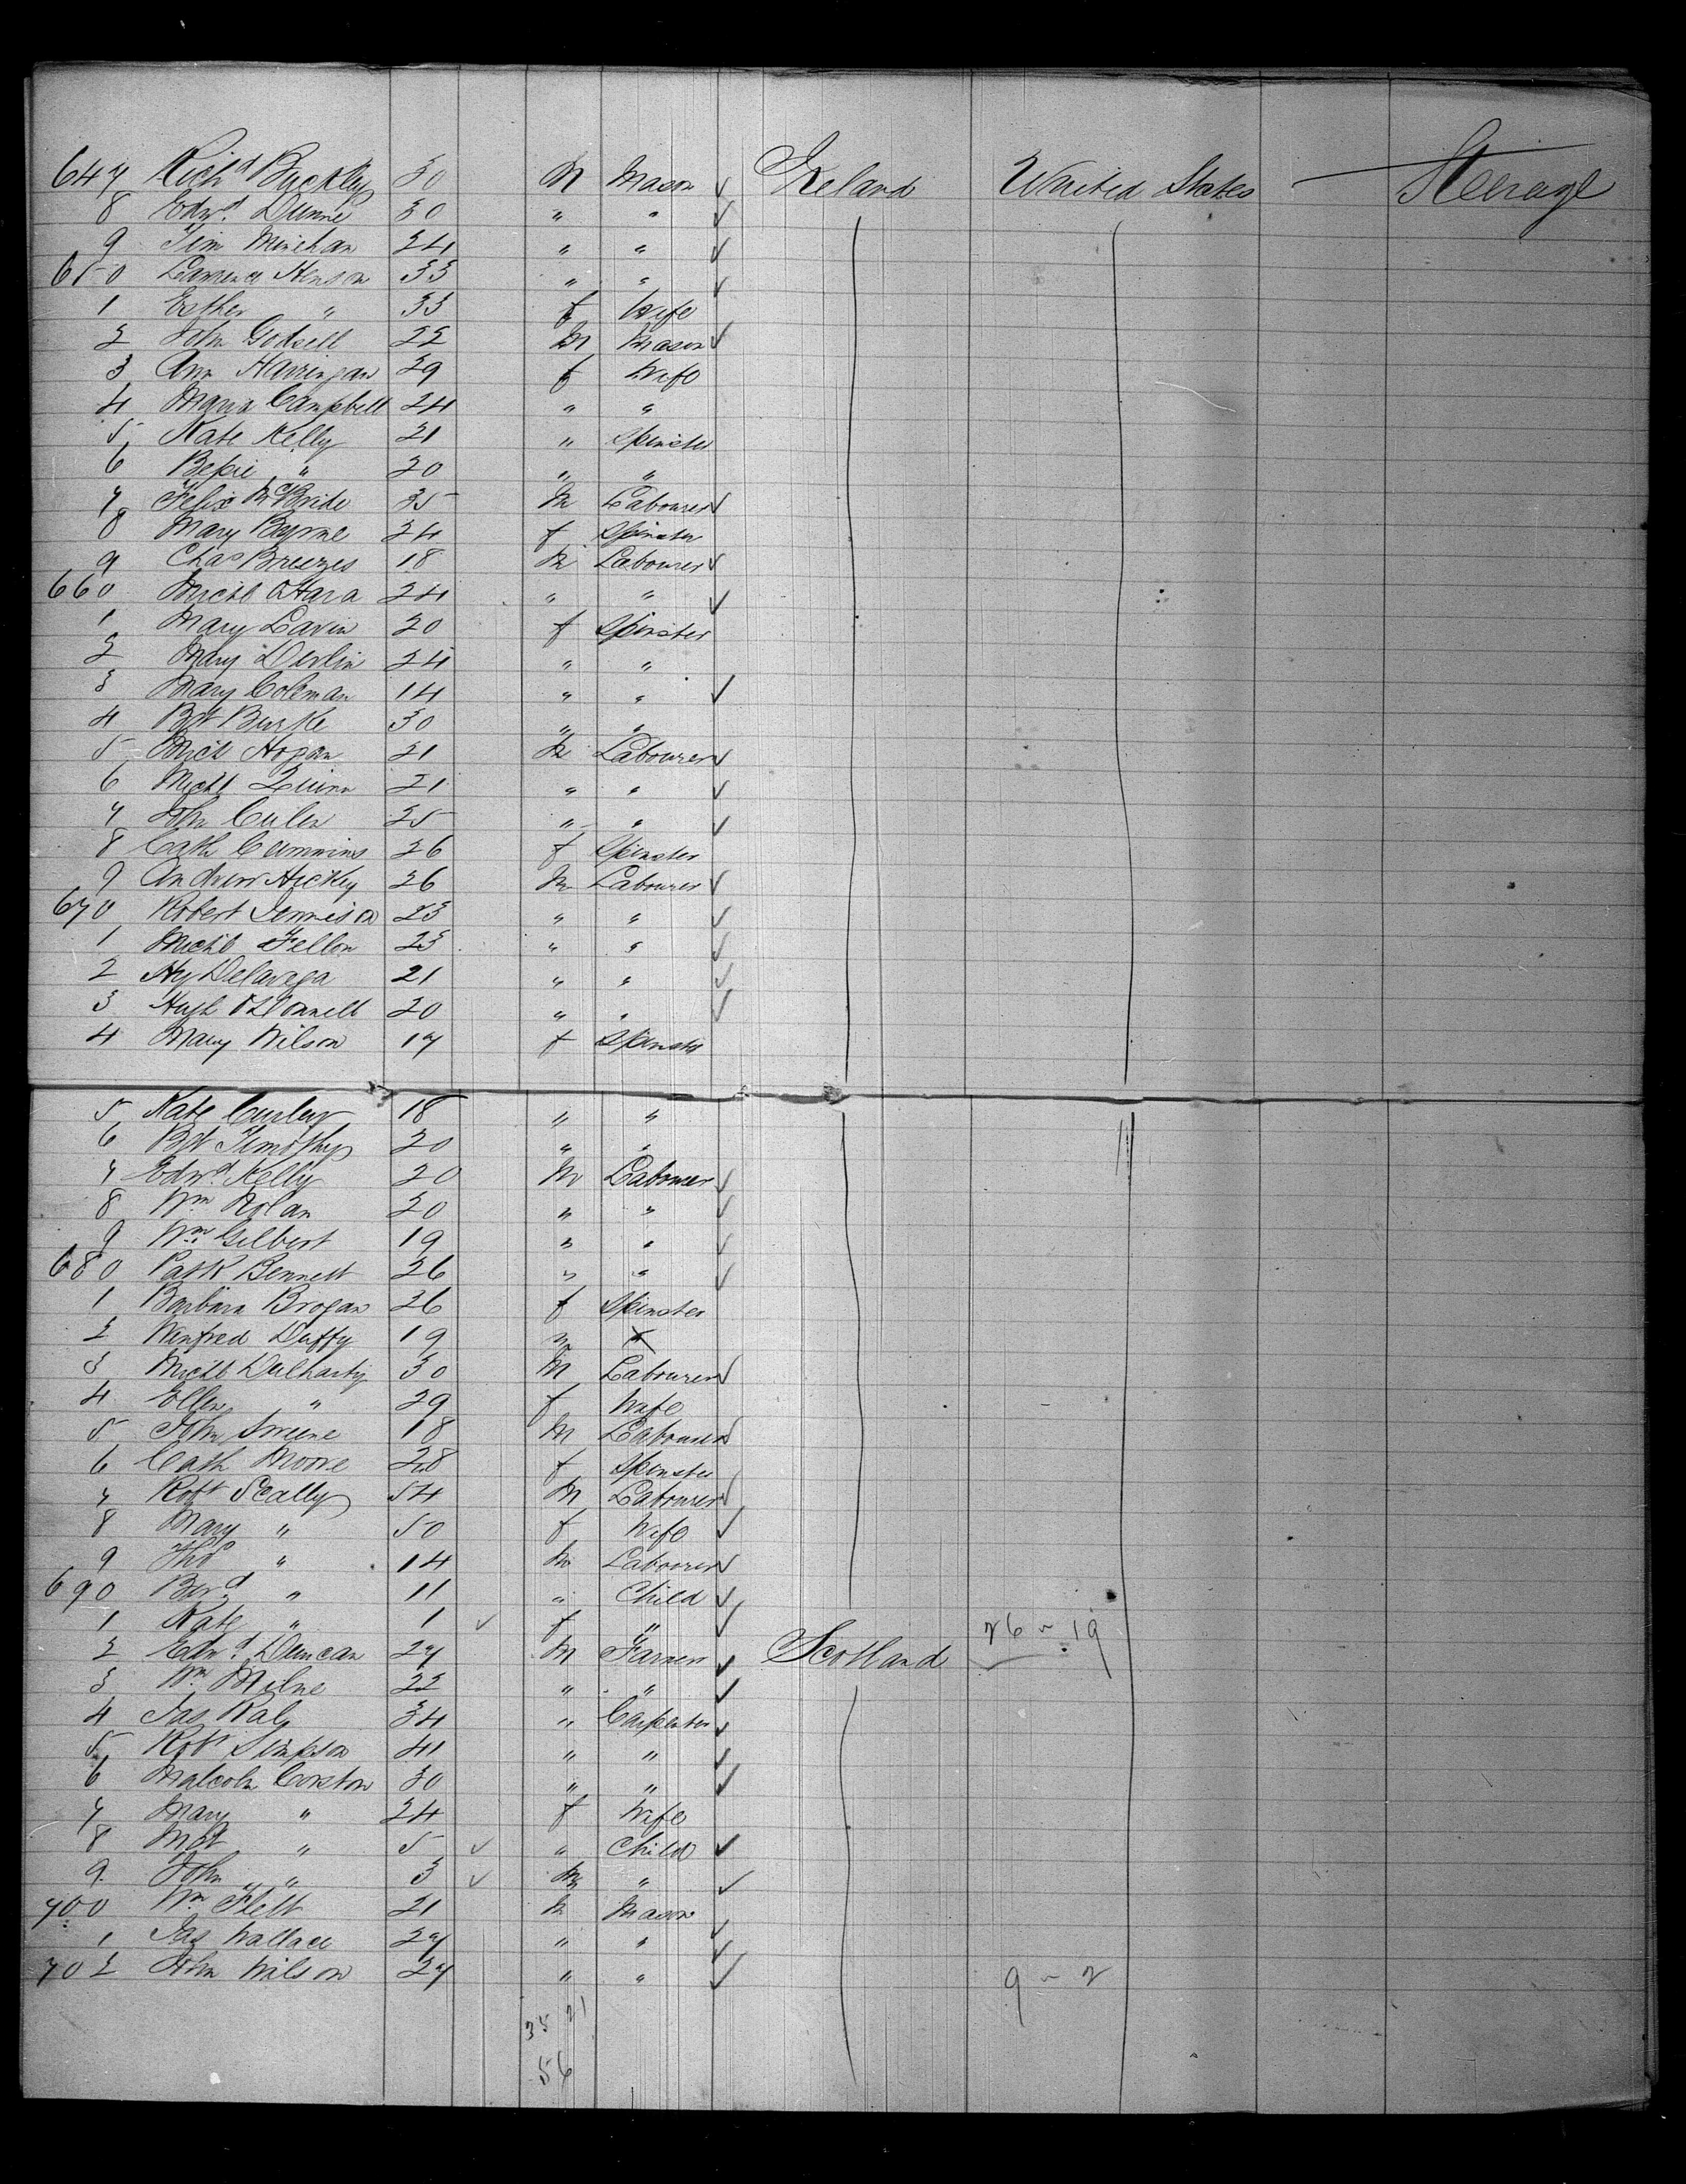 647 Richd Buckley 30 M Mason ✓ Ireland United States Steerage
8 Edwd. Dunne 30 " " ✓
9 Tim Minehan 24 " " ✓
650 Lawrence Henson 33 " " ✓
1 Esther " 33 f Wife
2 John Godsell 22 M Mason ✓
3 Ann Harringan 29 f Wife
4 Maria Campbell 24 " "
5 Kate Kelly 21 " Spinster
6 Bessie " 20 " "
7 Felix McBride 35 M Labourer ✓
8 Mary Byrne 24 f Spinster
9 Chas Breezes 18 M Labourer ✓
660 Michl OHara 24 " " ✓
1 Mary Lavin 20 f Spinster
2 Mary Devlin 24 " "
3 Mary Coleman 14 " " ✓
4 Bgt Burke 30 " "
5 Michl Hogan 21 M Labourer ✓
6 Michl Quinn 21 " " ✓
7 John Culen 25 " " ✓
8 Cath Cummins 26 f Spinster
9 Andrew Hickey 26 M Labourer ✓
670 Robert Jennison 23 " " ✓
1 Michl Fellon 23 " " ✓
2 Hy Delavega 21 " " ✓
3 Hugh O'Donnell 20 " " ✓
4 Mary Wilson 17 f Spinster
5 Kate Curley 18 " "
6 Bgt Timothy 20 " "
7 Edwd. Kelly 20 M Labourer ✓
8 Wm Nolan 20 " " ✓
9 Wm. Gilbert 19 " " ✓
680 Patk Bennett 26 " " ✓
1 Barbara Brogan 26 f Spinster
2 Winfred Duffy 19 " "
3 Michl Dulharty 30 M Labourer ✓
4 Ellen " 29 f Wife
5 John Sweene 18 M Labourer ✓
6 Cath Moore 28 f Spinster
7 Robt Scally 54 M Labourer ✓
8 Mary " 50 f Wife ✓
9 Tho " 14 M Labourer ✓
690 Berd " 11 " Child ✓
1 Kate " 1 ✓ f " ✓ 26 ~ 19
2 Edwd. Duncan 27 M Farmer ✓ Scotland
3 Wm. Milne 22 " " ✓
4 Jas 34 " Carpenter ✓
5 Robt Simpson 41 " " ✓
6 Malcolm Corston 30 " " ✓
7 Mary " 24 f Wife
8 Mgt " 5 ✓ " Child ✓
9 John " 3 ✓ M " ✓
700 Wm Flett 21 M Mason ✓
1 Jas Wallace 27 " " ✓
702 John Wilson 27 " " ✓ 9 ~ 2
35 21
56